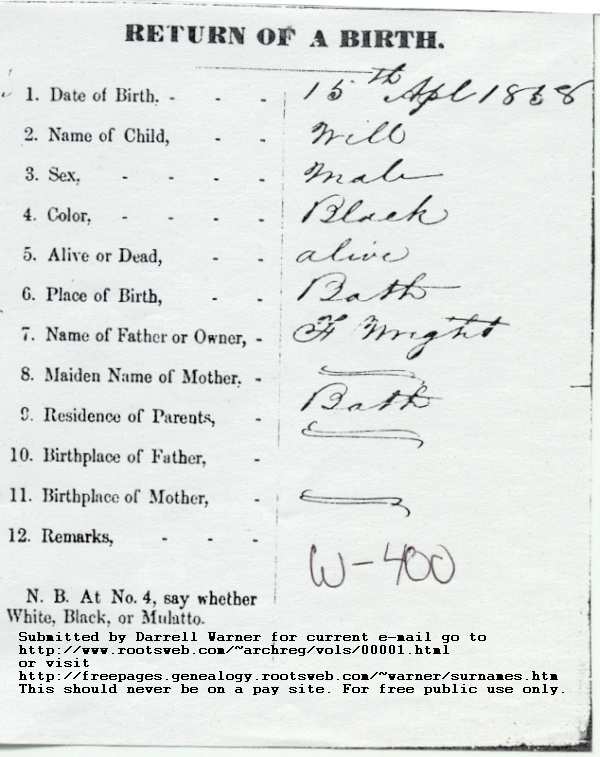 RETURN OF A BIRTH.
1. Date of Birth. - - - 15th Apl 1858
2. Name of Child, - - Will
3. Sex, - - - - Male
4. Color, - - - - Black
5. Alive or Dead, - - alive
6. Place of Birth, - - Bath
7. Name of Father or Owner, - F Wright
8. Maiden Name of Mother. -
9. Residence of Parents, - Bath
10. Birthplace of Father, -
11. Birthplace of Mother, -
12. Remarks, - - -
W-400
N. B. At No. 4, say whether
White, Black, or Mulatto.
Submitted by Darrell Warner for current e-mail go to
http://www.rootsweb.com/~archreg/vols/00001.html
or visit
http://freepages.genealogy.rootsweb.com/~warner/surnames.htm
This should never be on a pay site. For free public use only.